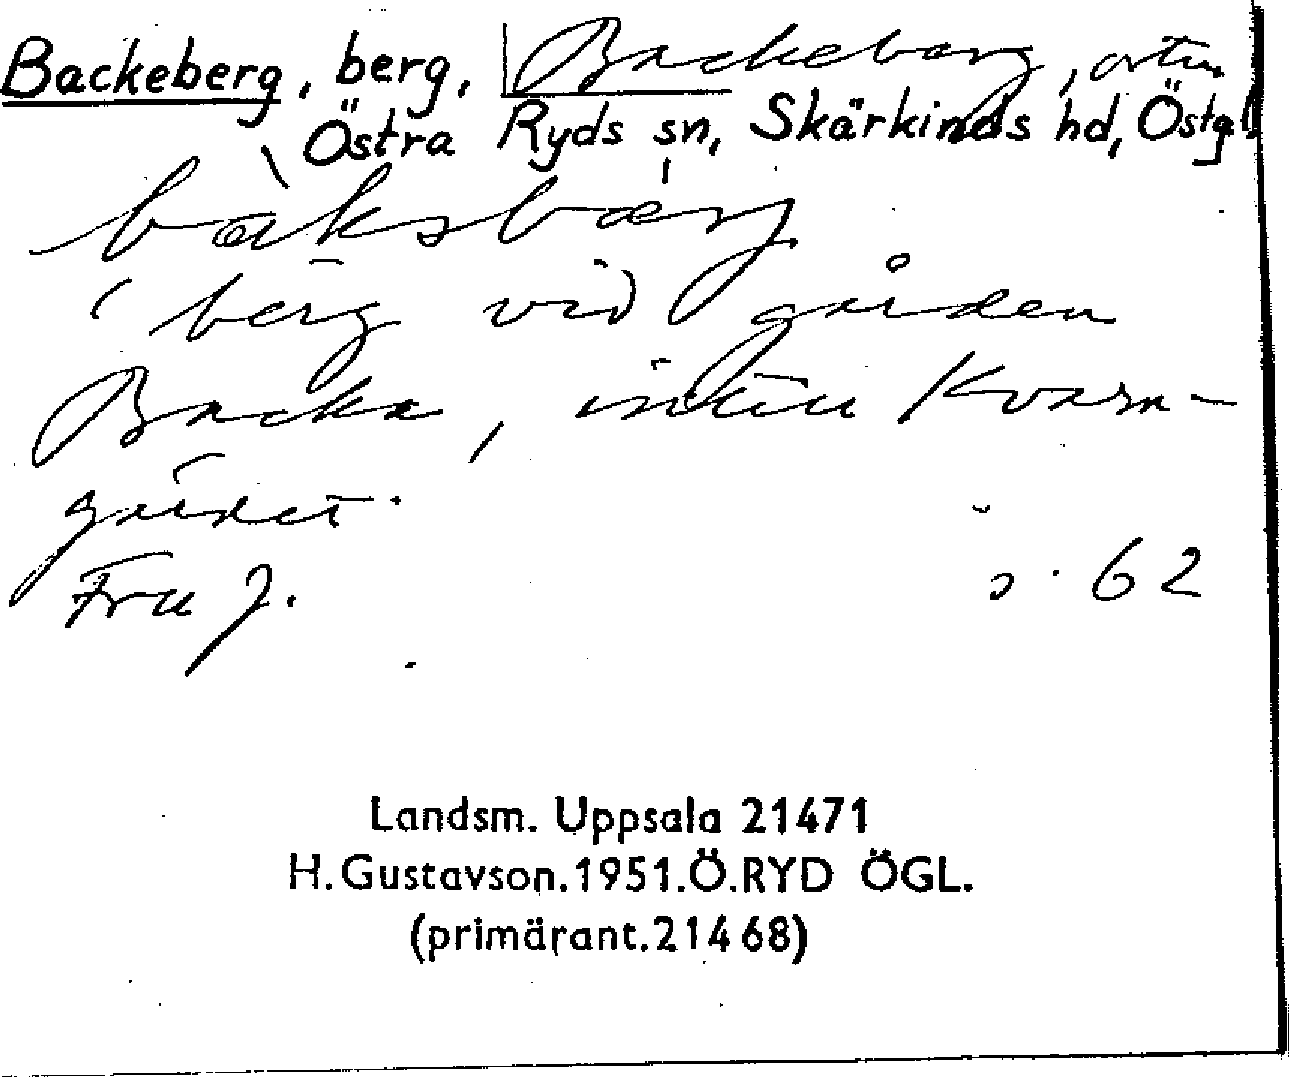 Backeberg, berg, Backeberg, ortn.
Östra Ryds sn, Skärkinds hd, Östgl
berg vid gården
Backa, intill Kvarn-
gärdet.
Fru J. s. 62
Landsm. Uppsala 21471
H.Gustavson.1951.Ö.RYD ÖGL.
(primärant.21468)